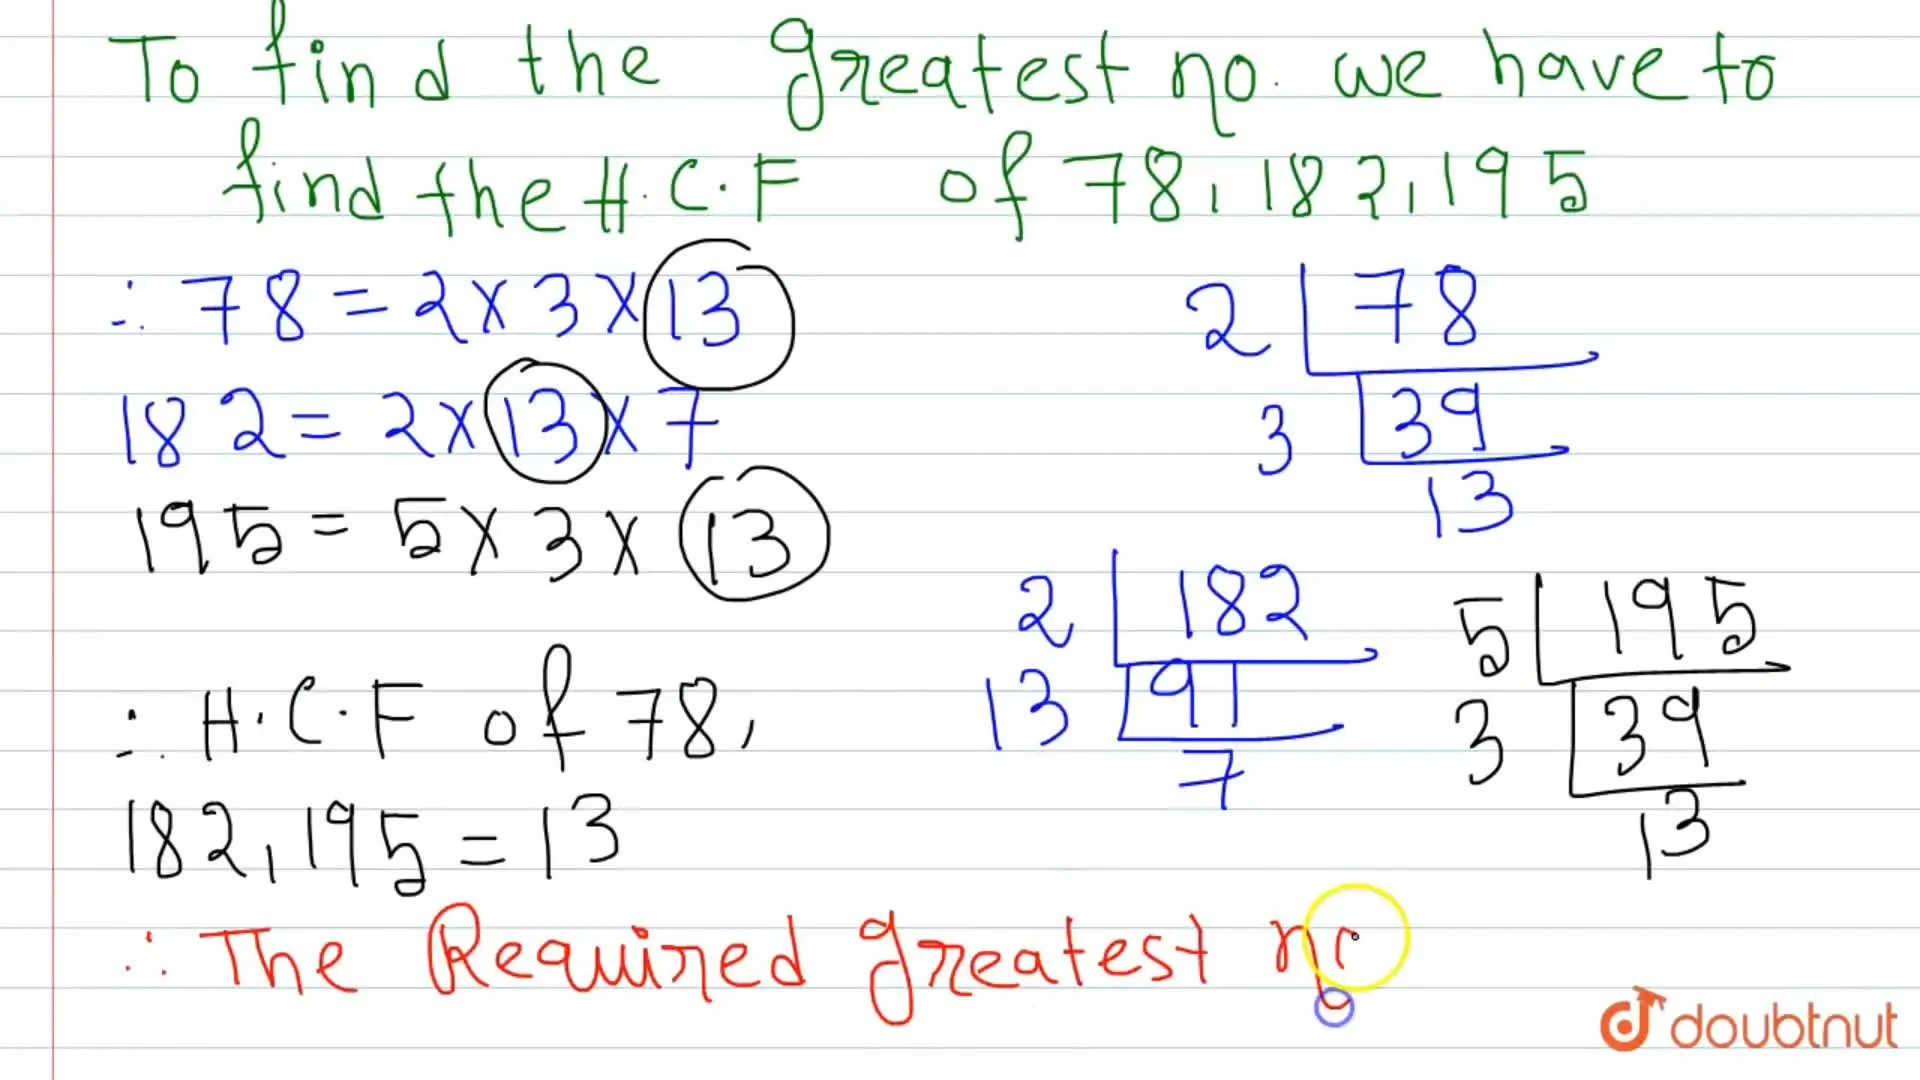 To find the greatest no. we have to
find the H.C.F of 78, 182, 195
∴ 78 = 2 x 3 x 13
182 = 2 x 13 x 7
195 = 5 x 3 x 13
∴ H.C.F of 78,
182, 195 = 13
2 78
3 39
13
2 182
13 91
7
5 195
3 39
13
∴ The Required greatest no
doubtnut